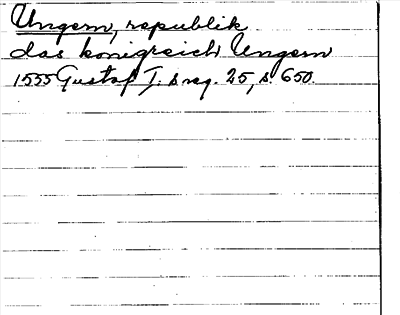 Ungern, republik
das konigreich Ungern
1555 Gustaf I:s reg. 25, s. 650.